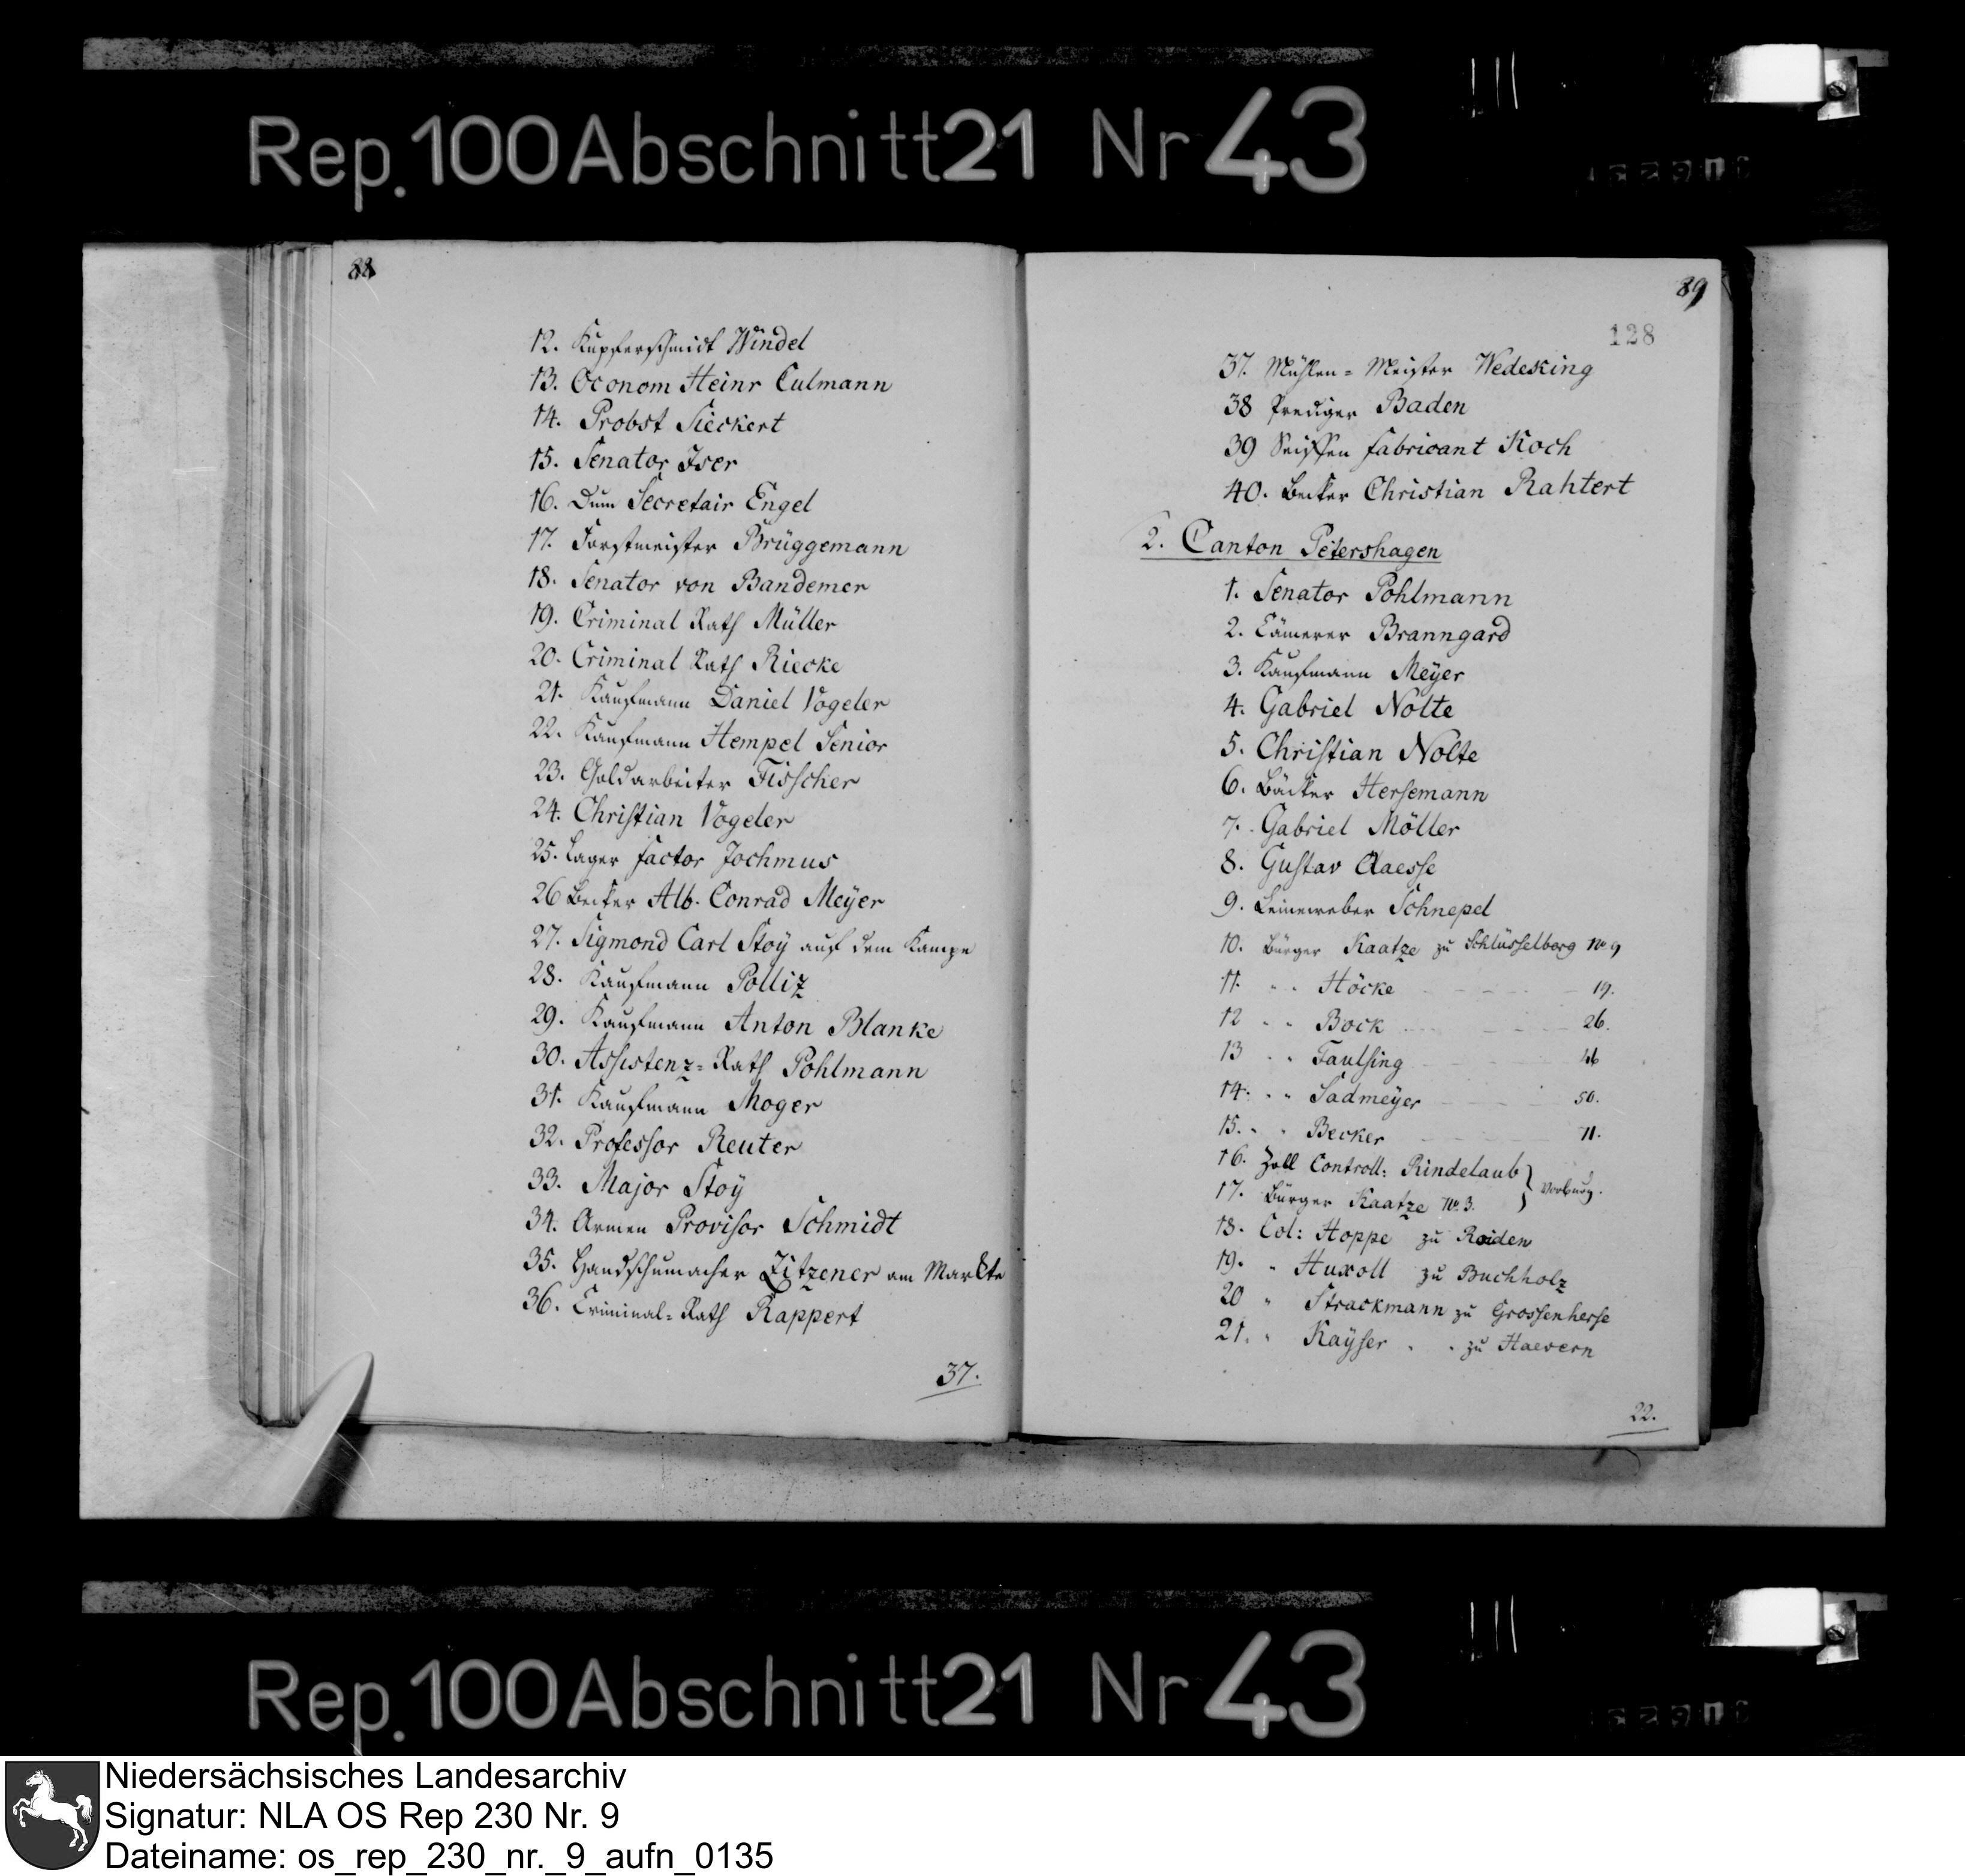 Rep. 100 Abschnitt 21 Nr 43
88
12. Kupferschmidt Windel
13. Oconom Heinr Culmann
14. Probst Sieckert
15. Senator Iser
16. Dum Secretair Engel
17. Forstmeister Brüggemann
18. Senator von Bandemer
19. Criminal Rath Müller
20. Criminal Rath Riecke
21. Kaufmann Daniel Vogeler
22. Kaufmann Hempel Senior
23. Goldarbeiter Fisscher
24. Christian Vogeler
25. Lager factor Jochmus
26 Becker Alb. Conrad Meÿer
27. Sigmond Carl Stoÿ auf dem Kampe
28. Kaufmann Polliz
29. Kaufmann Anton Blanke
30. Assistenz-Rath Pohlmann
31. Kaufmann Moger
32. Professor Reuter
33. Major Stoÿ
34. Armen Provisor Schmidt
35. Handschumacher Zitzener am Markte
36. Criminal-Rath Rappert
37.
89
128
37. Mühlen-Meister Wedeking
38 Prediger Baden
39 Seiffen fabricant Koch
40. Becker Christian Rahtert
2. Canton Petershagen
1. Senator Pohlmann
2. Cämerer Branngard
3. Kaufmann Meÿer
4. Gabriel Nolte
5. Christian Nolte
6. Bäcker Hersemann
7. Gabriel Möller
8. Gustav Claesse
9. Leineweber Schnepel
10. Bürger Kaatze zu Schlüsselberg No 9
11. " " Höcke 19.
12 " " Bock 26.
13 " " Faulsing 46
14. " " Sadmeÿer 50.
15. " " Becker 71.
16. Zoll Controll: Rindelaub
17. Bürger Kaatze No. 3. } Vorburg.
18. Col: Hoppe zu Raiden
19. " Huxoll zu Buchholz
20 " Strackmann zu Grossenherse
21. " Kaÿser zu Haevern
22.
Rep. 100 Abschnitt 21 Nr 43
Niedersächsisches Landesarchiv
Signatur: NLA OS Rep 230 Nr. 9
Dateiname: os_rep_230_nr._9_aufn_0135